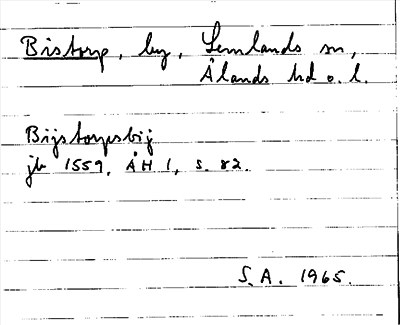 Bistorp, by, Lemlands sn,
Ålands hd o. l.
Bijstorpsbij
jb 1559, ÅH 1, s. 82.
S.A. 1965.